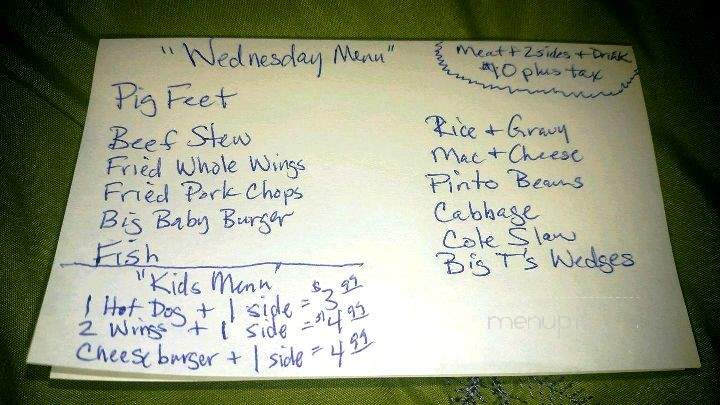 "Wednesday Menu"
Meat + 2 sides + Drink
$10 plus tax
Pig Feet
Beef Stew
Fried Whole Wings
Fried Pork Chops
Big Baby Burger
Fish
Rice + Gravy
Mac + Cheese
Pinto Beans
Cabbage
Cole Slaw
Big T's Wedges
"Kids Menu"
1 Hot Dog + 1 side = $3.99
2 Wings + 1 side = $4.99
Cheeseburger + 1 side = 4.99
menupix